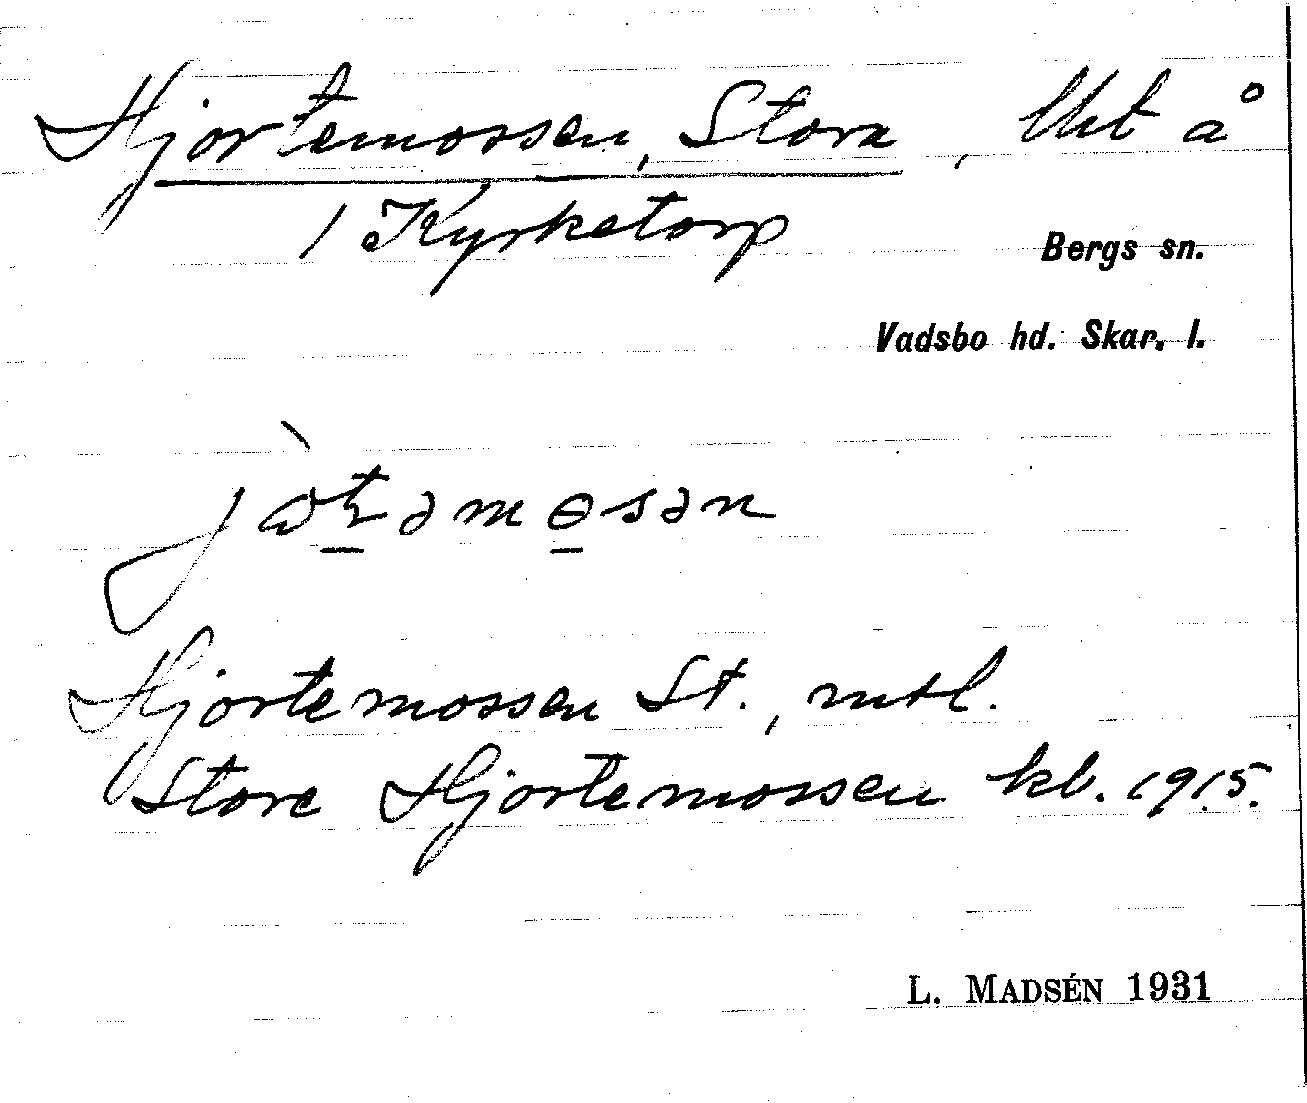 Hjortemossen, Stora, Ukt å
1 Kyrketorp
Bergs sn.
Vadsbo hd. Skar. l.
Hjortemossen St., mtl.
Store Hjortemossen kb. 1915.
L. MADSÉN 1931